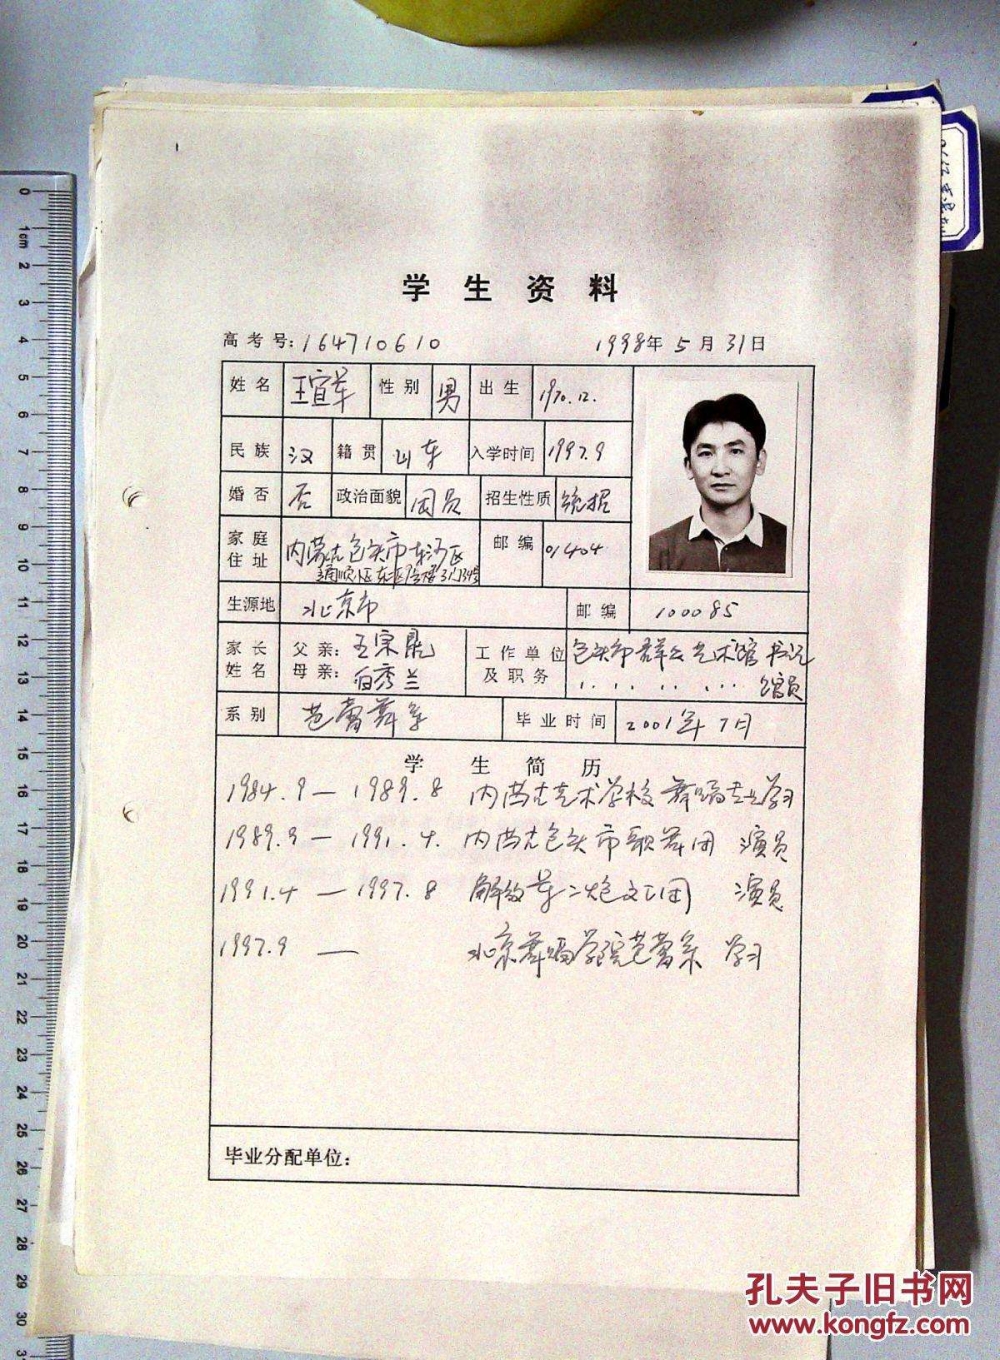 学生资料
高考号:164710610 1998年5月31日
姓名 王宜军 性别 男 出生 1970.12.
民族 汉 籍贯 山东 入学时间 1997.9
婚否 否 政治面貌 团员 招生性质 统招
家庭住址 内蒙古包头市东河区 邮编 01404
生源地 北京市 邮编 100085
家长姓名 父亲: 王宗 工作单位及职务 包头市群众艺术馆 书记
母亲: 白秀兰 馆员
系别 芭蕾舞系 毕业时间 2001年7月
学生简历
1984.9—1989.8 内蒙古艺术学校 舞蹈专业学习
1989.9—1991.4. 内蒙古包头市歌舞团 演员
1991.4—1997.8 解放军二炮文工团 演员
1997.9— 北京舞蹈学院芭蕾系 学习
毕业分配单位:
孔夫子旧书网
www.kongfz.com